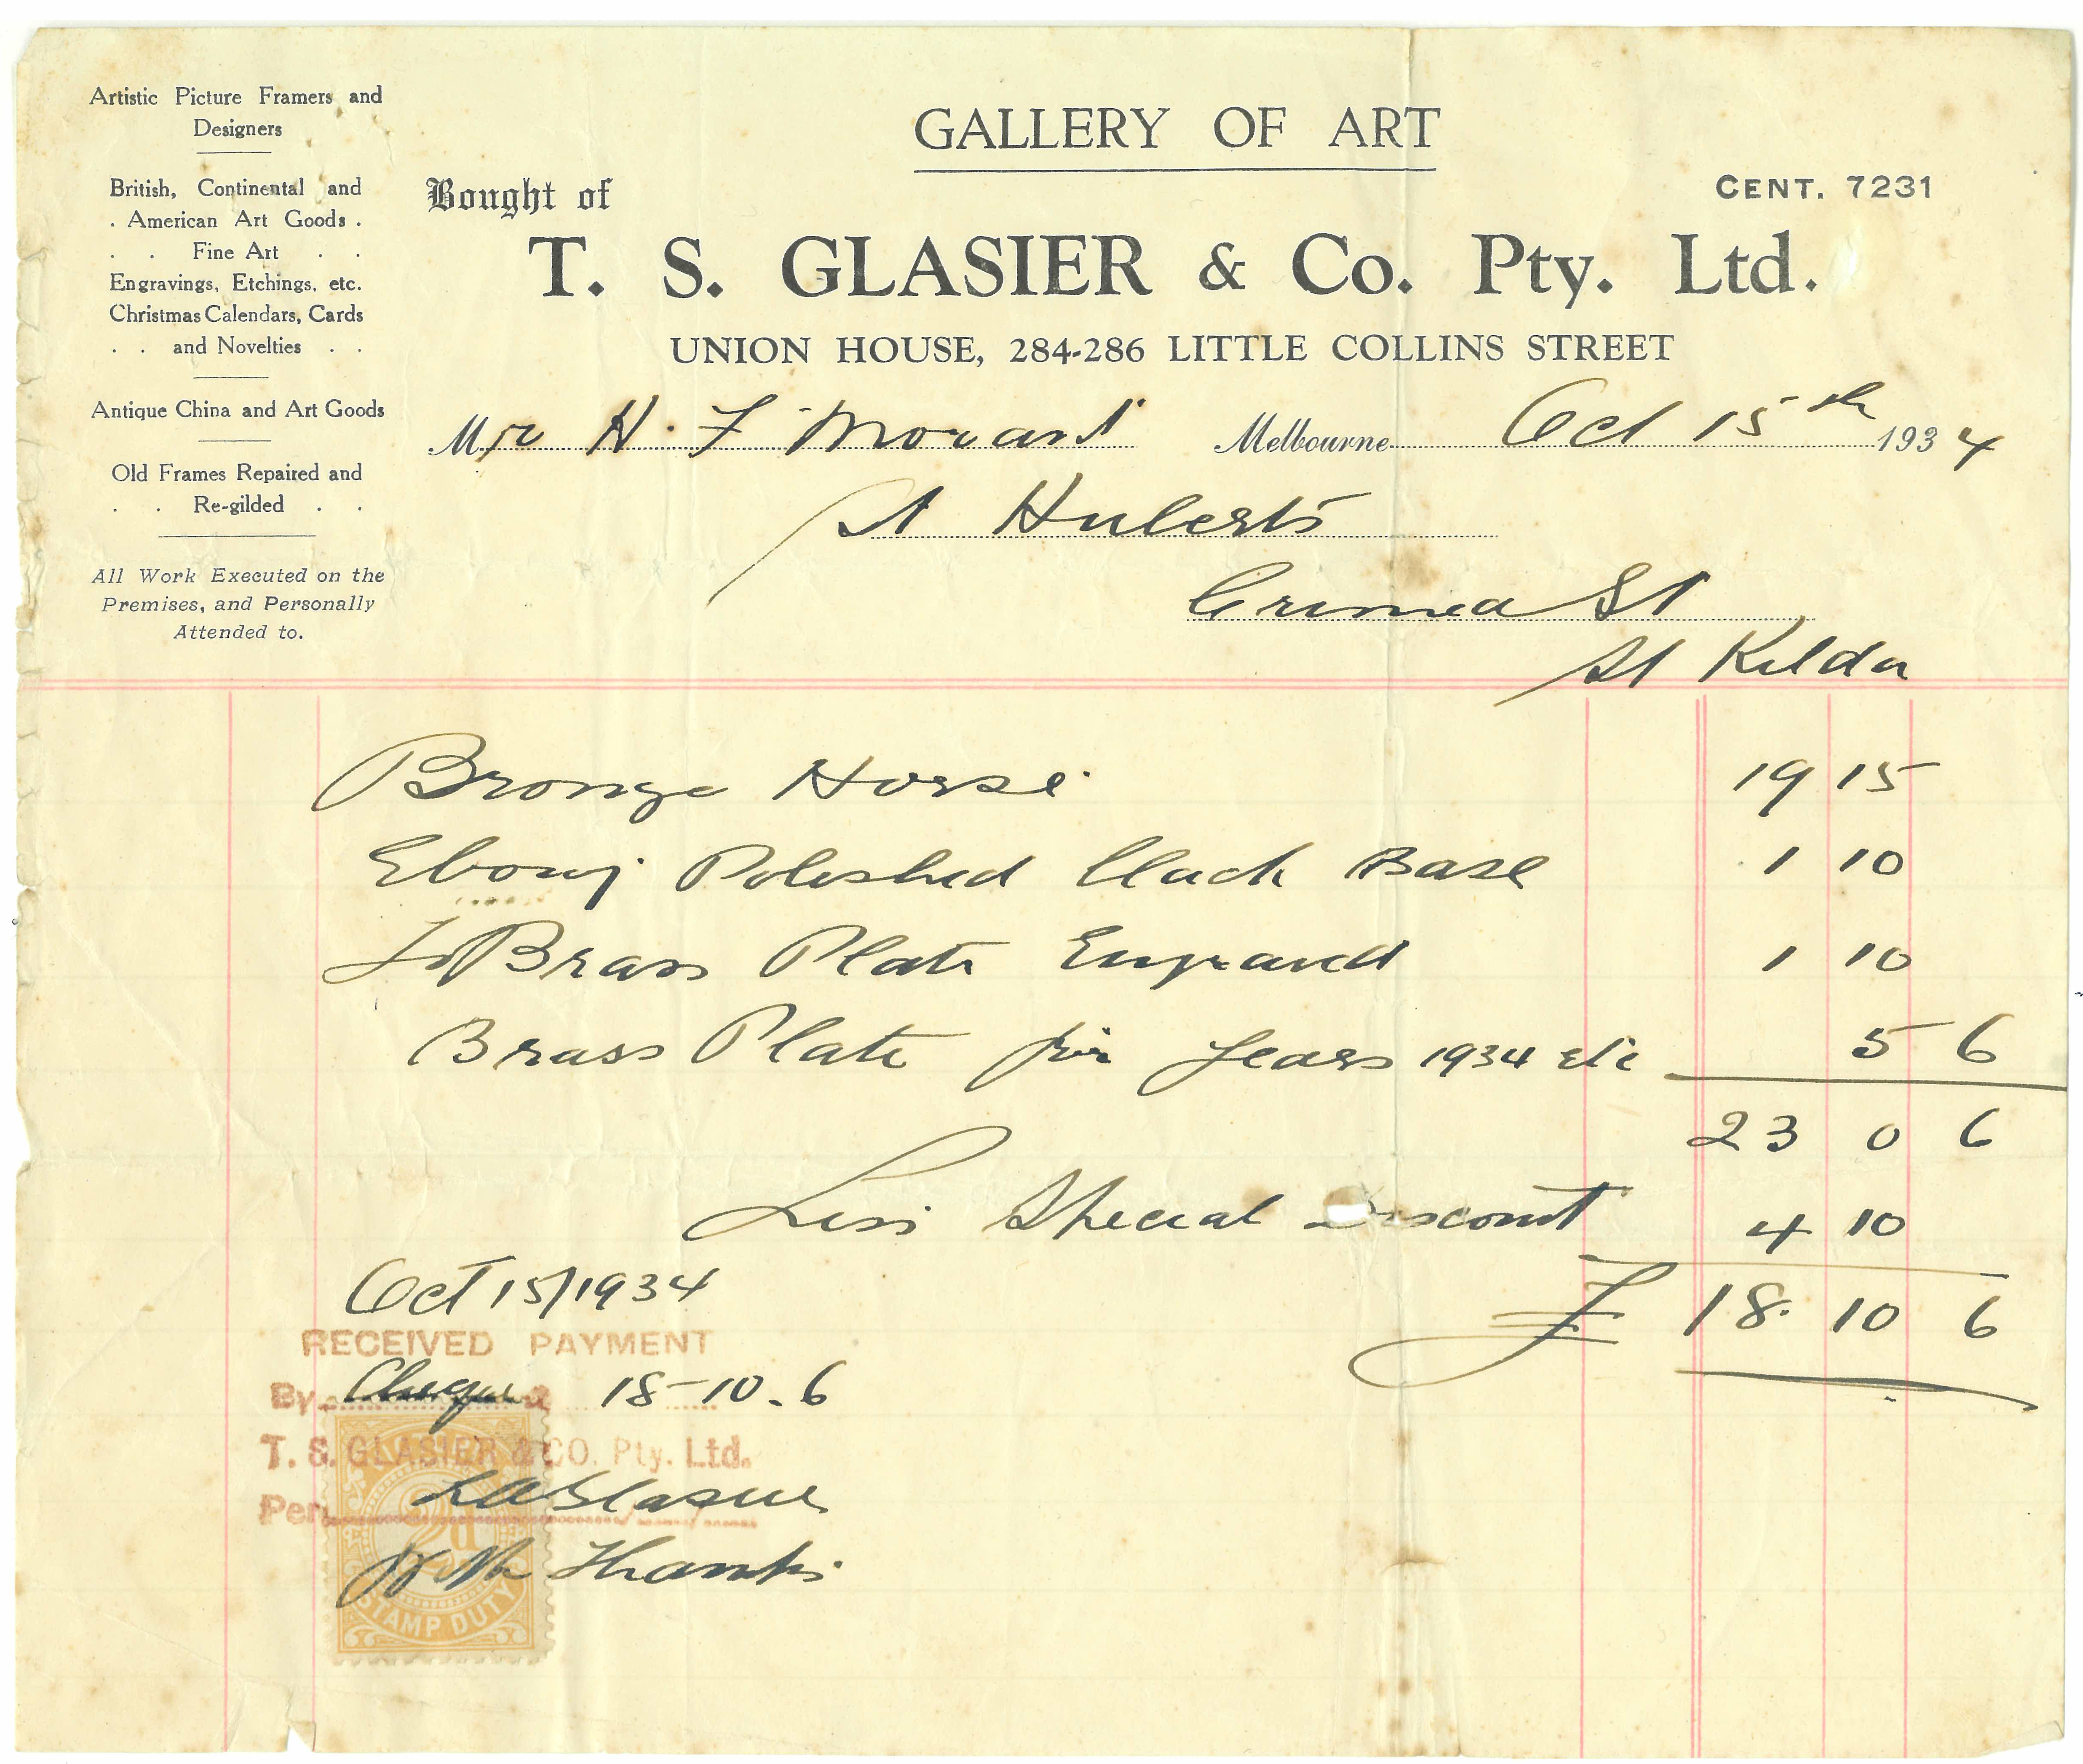 Artistic Picture Framers and
Designers
British, Continental and
. American Art Goods .
. . Fine Art . .
Engravings, Etchings, etc.
Christmas Calendars, Cards
. . and Novelties . .
Antique China and Art Goods
Old Frames Repaired and
. . Re-gilded . .
All Work Executed on the
Premises, and Personally
Attended to.
GALLERY OF ART
Bought of
CENT. 7231
T. S. GLASIER & Co. Pty. Ltd.
UNION HOUSE, 284-286 LITTLE COLLINS STREET
Mr H. F Morant Melbourne Oct 15th 1934
St Huberts
Crimea St
St Kilda
Bronze Horse 19 15
Ebony Polished Black Base 1 10
Brass Plate Engraved 1 10
Brass Plate for Years 1934 etc 5 6
23 0 6
Less Special Discount 4 10
£ 18. 10 6
Oct 15/1934
RECEIVED PAYMENT
By Cheque 18-10-6
T. S. GLASIER & CO. Pty. Ltd.
Per Glasier
With Thanks
2d
STAMP DUTY